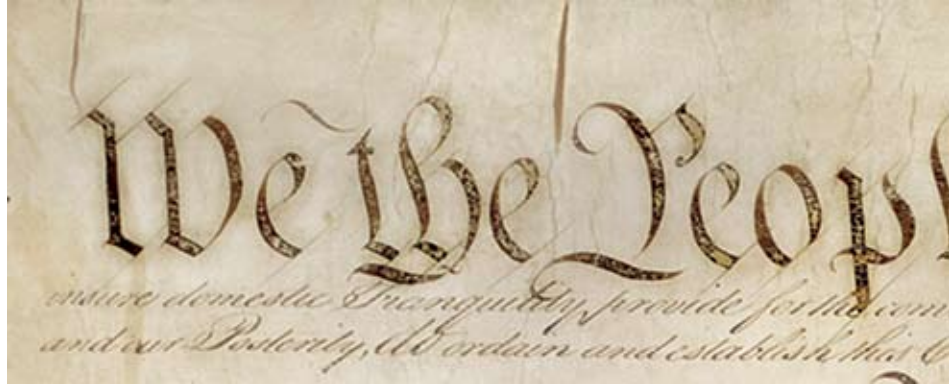 We the Peopl
insure domestic Tranquility, provide for the com
and our Posterity, do ordain and establish this C